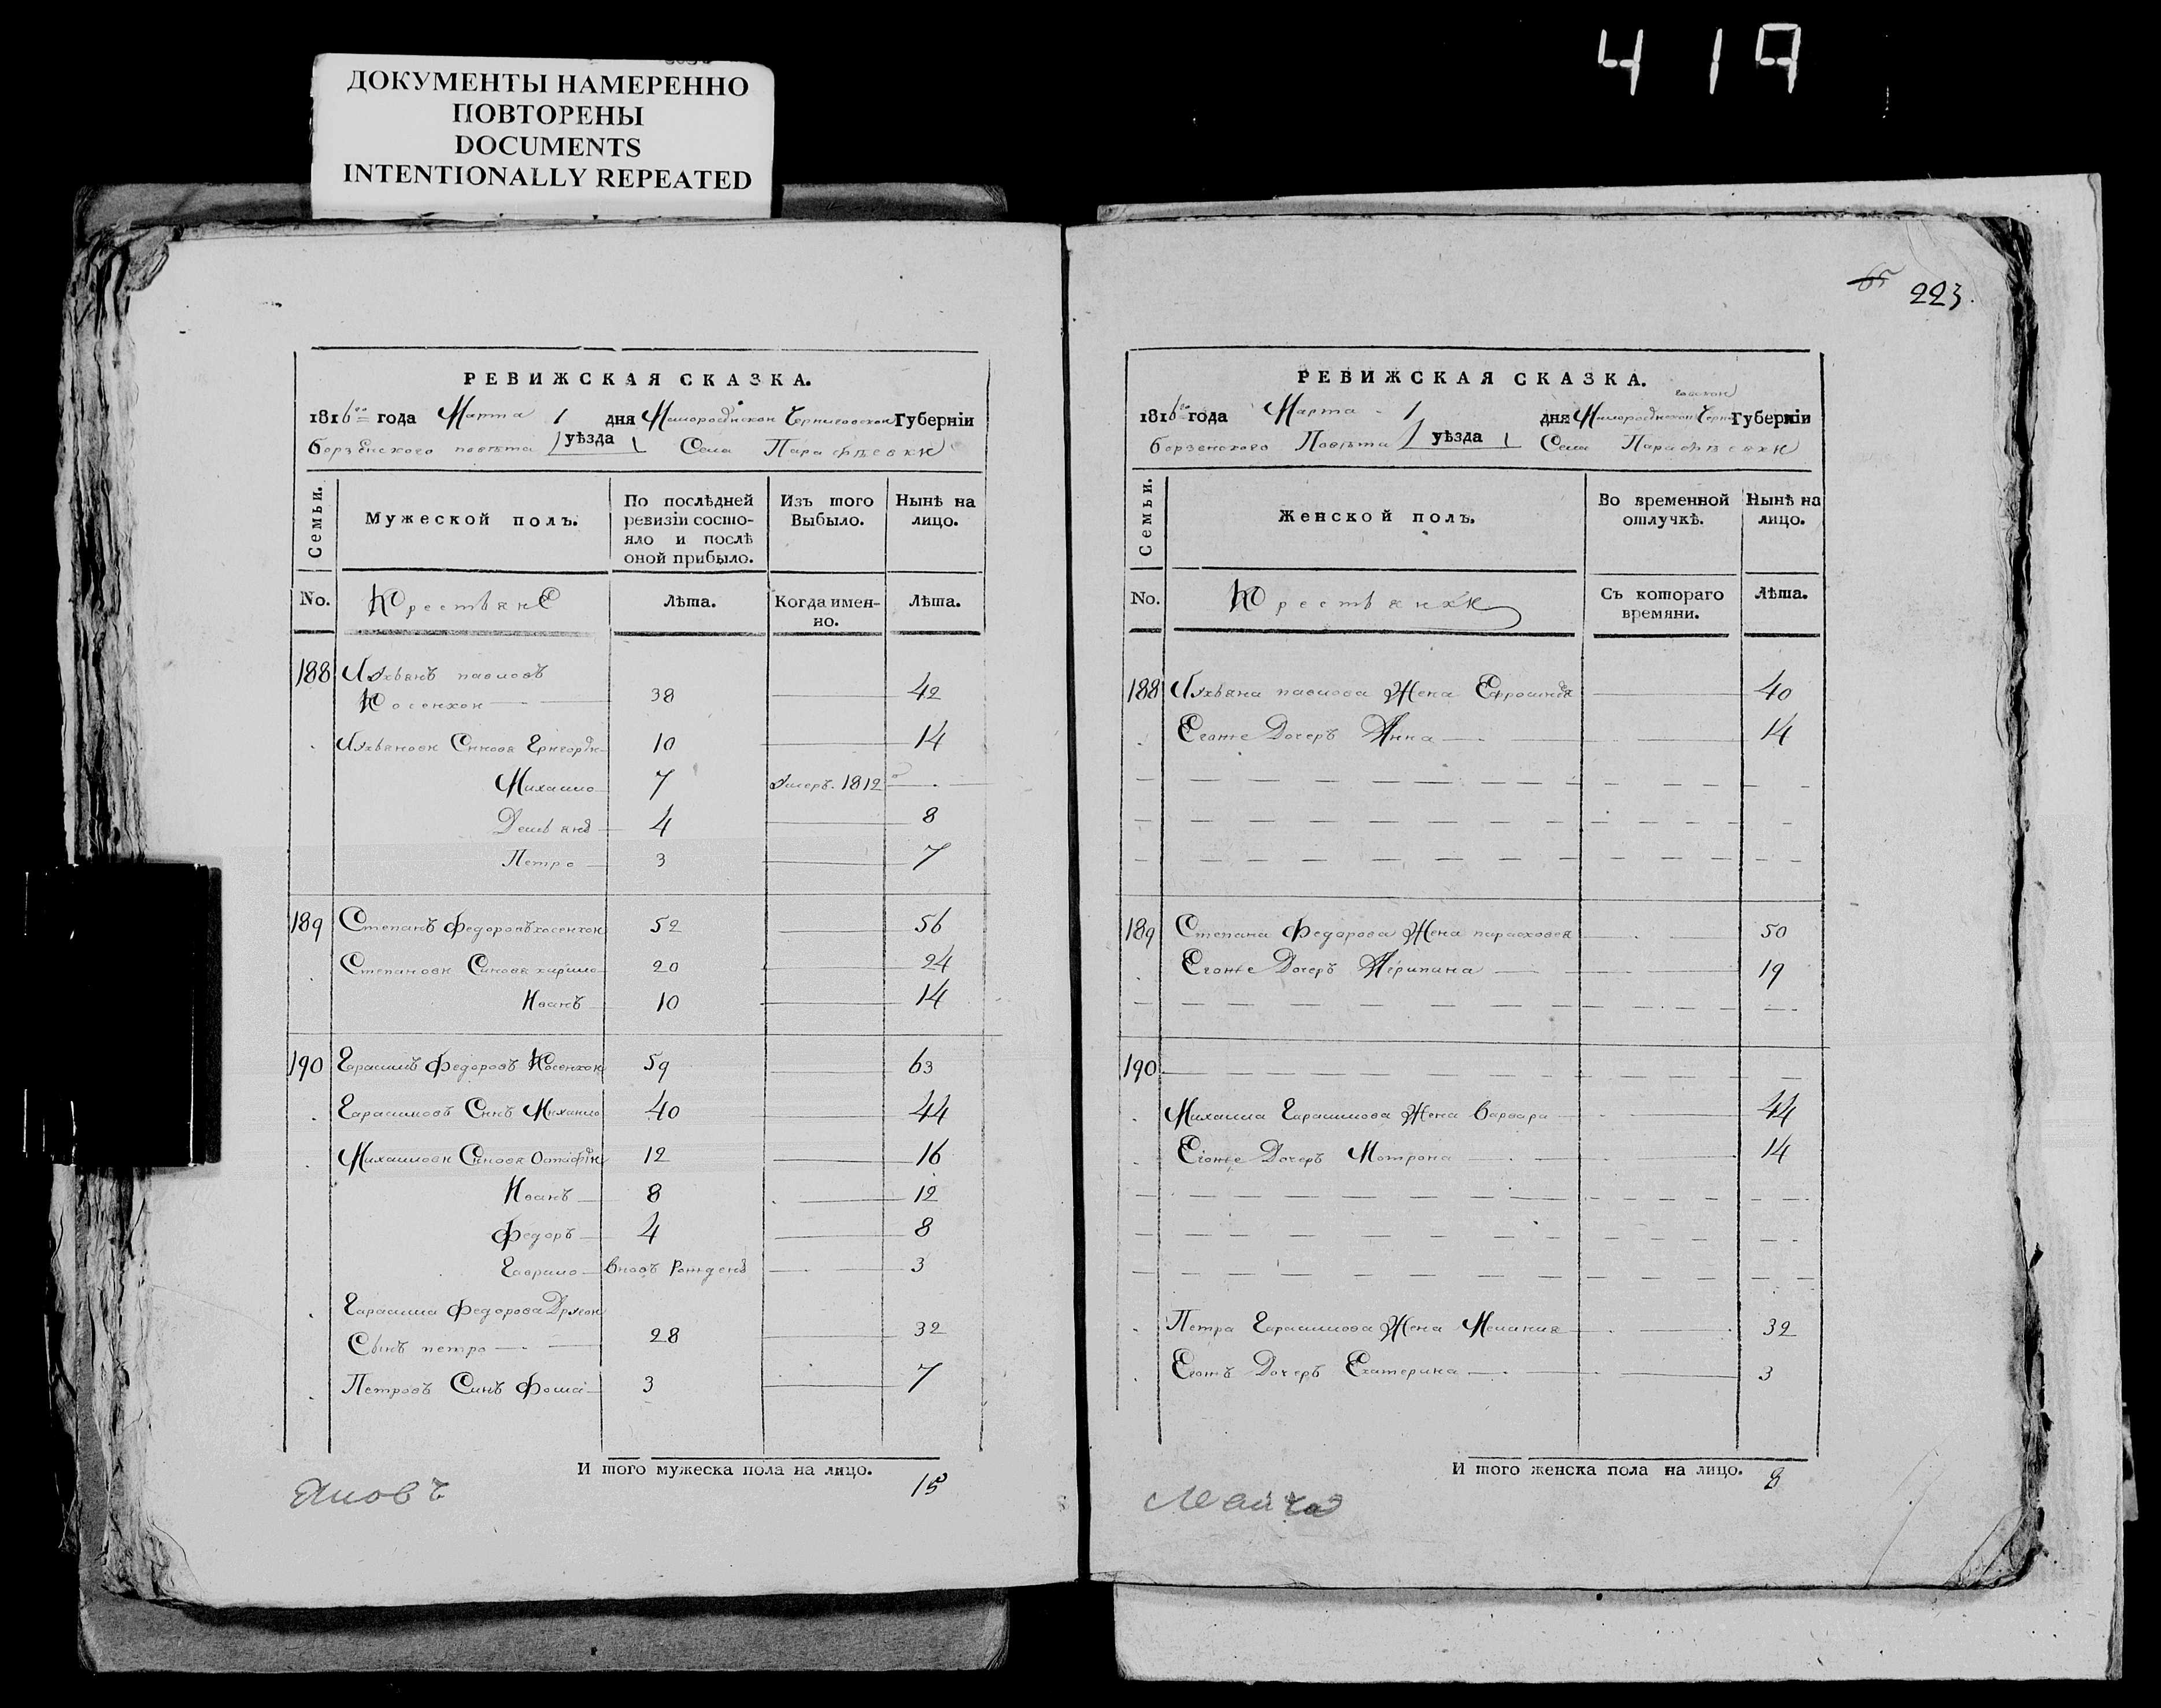 4 1 9
ДОКУМЕНТЫ НАМЕРЕННО
ПОВТОРЕНЫ
DOCUMENTS
INTENTIONALLY REPEATED
РЕВИЖСКАЯ СКАЗКА.
1816го года Марта 1 дня Малороссійской Черниговской Губерніи
борзенского повѣта уѣзда Села Парафѣевки
Семьи. Мужеской полъ. По послѣдней ревизіи состояло и послѣ оной прибыло. Изъ того Выбыло. Нынѣ на лицо.
No. Крестьяне Лѣта. Когда именно. Лѣта.
188 Лукьянъ павловъ
Косенкон 38 42
Лукьянови Синовя Григорѣи 10 14
Михаило 7 Умеръ 1812 го
Демьянъ 4 8
Петро 3 7
189 Степанъ федоровъ косенкон 52 56
Степанови Синовя кирило 20 24
Иванъ 10 14
190 Гарасимъ федоровъ Косенкон 59 63
Гарасимовъ Синъ Михаило 40 44
Михаилови Синовя Остафѣи 12 16
Иванъ 8 12
федоръ 4 8
Гаврило вновъ рожденъ 3
Гарасима федорова Другои
Сынъ петро 28 32
Петровъ Синъ фома 3 7
И того мужеска пола на лицо. 15
65 223.
РЕВИЖСКАЯ СКАЗКА.
1816го года Марта 1 дня Малороссійской Черниговской Губерніи
борзенского Повѣта уѣзда Села Парафѣевки
Семьи. Женской полъ. Во временной отлучкѣ. Нынѣ на лицо.
No. Крестьянки Съ котораго времяни. Лѣта.
188 Лукьяна павлова Жена Ефросиния 40
Егоже Дочеръ Анна 14
189 Степана федорова Жена парасковея 50
Егоже Дочеръ Агрипина 19
190
Михаила Гарасимова Жена варвара 44
Егоже Дочеръ Мотрона 14
Петра Гарасимова Жена Мелания 32
Егожъ Дочеръ Екатерина 3
И того женска пола на лицо. 8